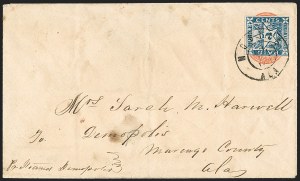 CENTS
ALA
Mrs Sarah M. Harwell
To Demopolis
Marengo County
Ala
Per Steamer Demopolis